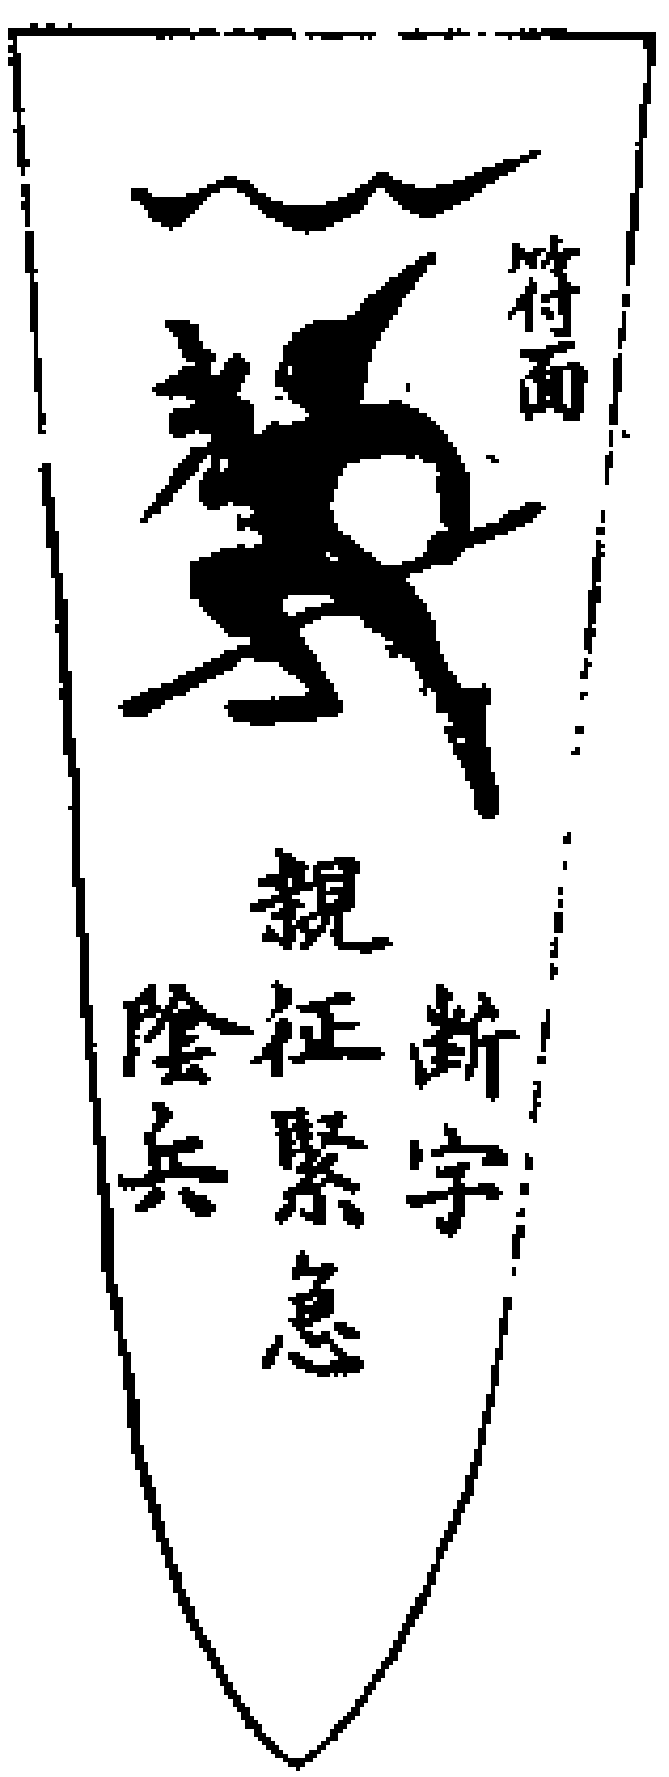 符面
断字
親征緊急
陰兵